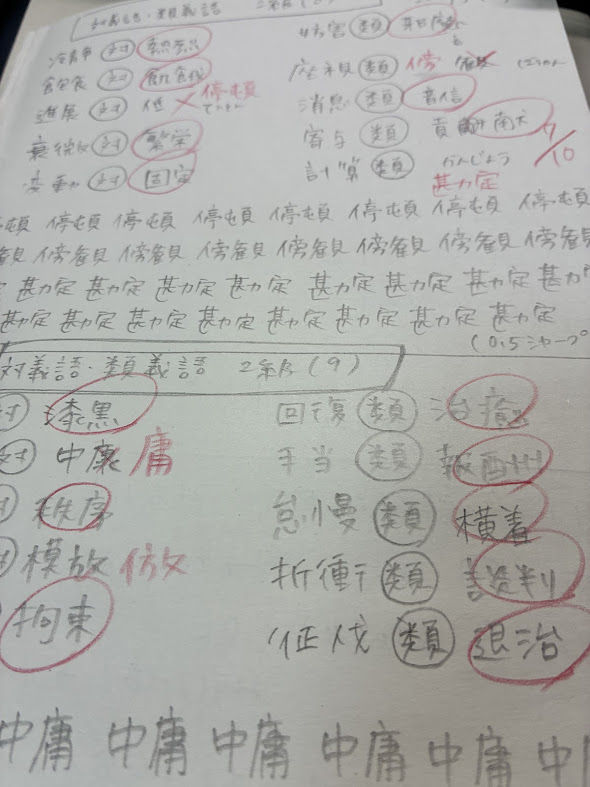 対義語・類義語 2級
冷静 対 熱烈 妨害 類
飽食 対 飢餓 座視 類 傍 傍観 ぼうかん
進展 対 停 停頓 ていとん 消息 類 音信
衰微 対 繁栄 寄与 類 貢献
変動 対 固定 計算 類 かんじょう 勘定 7/10
停頓 停頓 停頓 停頓 停頓 停頓 停頓 停頓
観 傍観 傍観 傍観 傍観 傍観 傍観 傍観
定 勘定 勘定 勘定 勘定 勘定 勘定 勘
勘定 勘定 勘定 勘定 勘定 勘定 勘定
(0.5シャープ
対義語・類義語 2級(9)
対 漆黒 回復 類 治癒
対 中 庸 手当 類 報酬
秩序 怠慢 類 横着
模放 倣 折衝 類 談判
拘束 征伐 類 退治
中庸 中庸 中庸 中庸 中庸 中